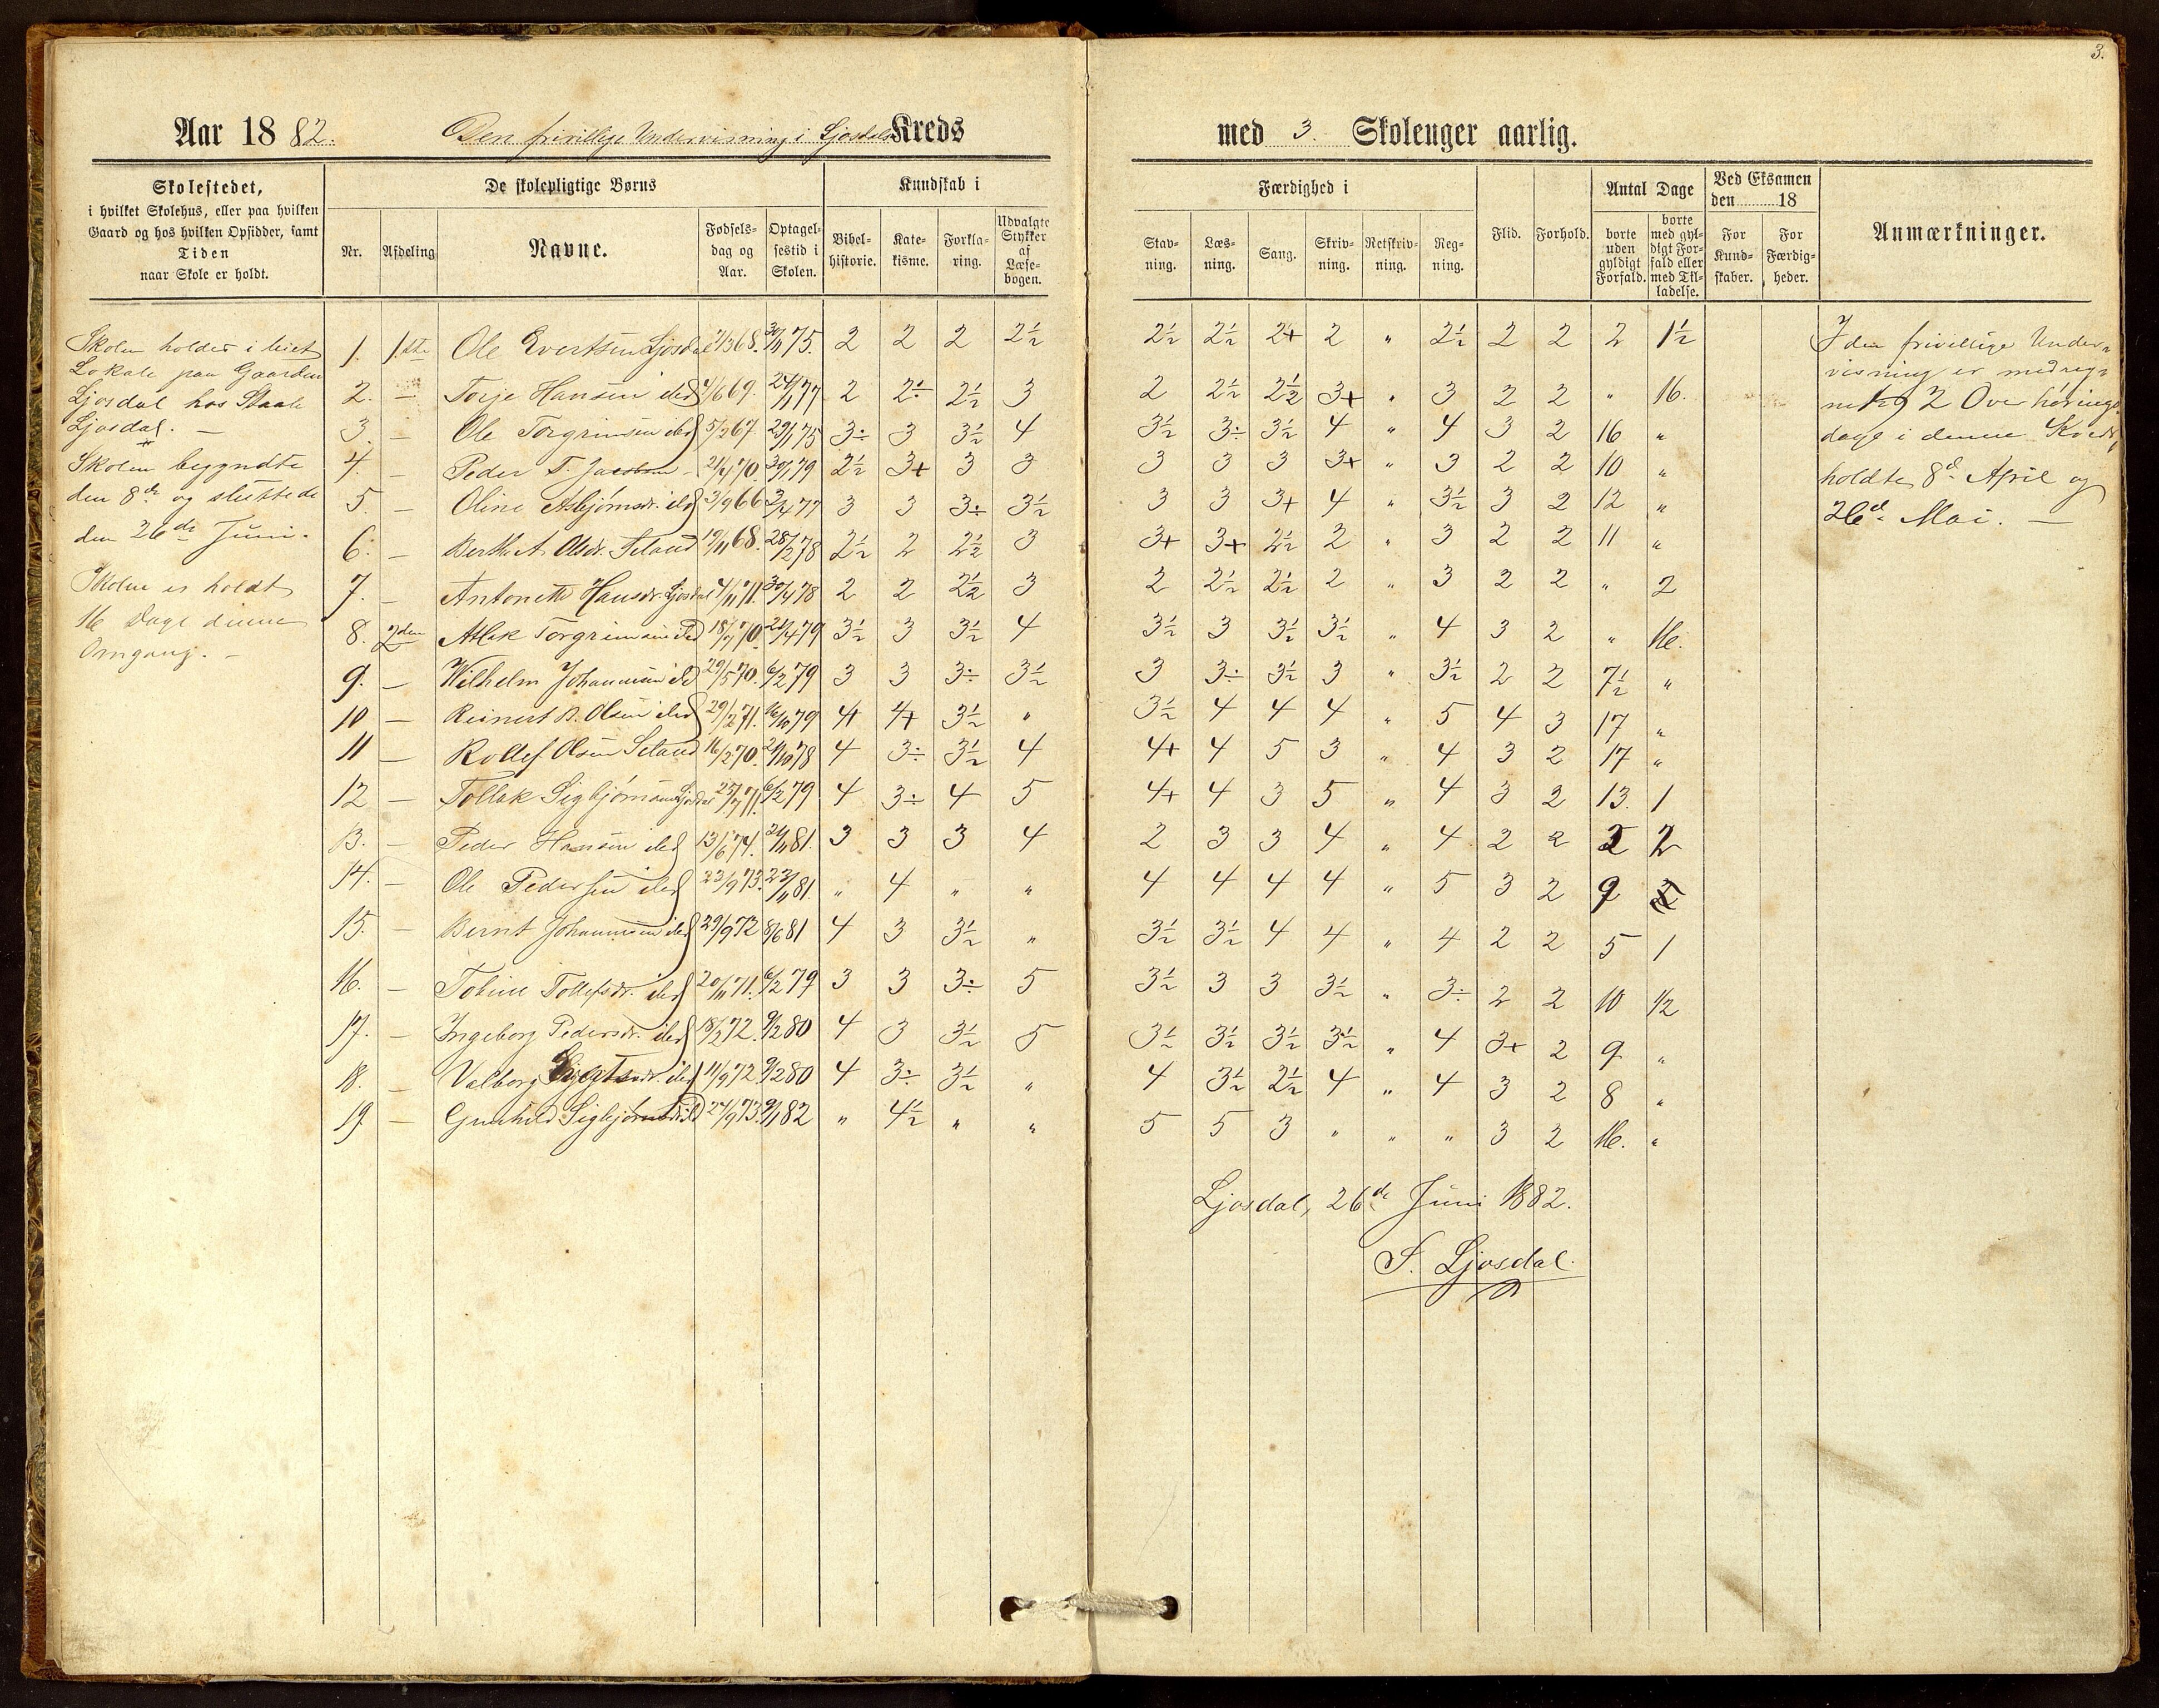 3.
Aar 1882. Den frivillige Undervisning i Ljosdals Kreds med 3. Skolenger aarlig.
Skolestedet,
i hvilket Skolehus, eller paa hvilken
Gaard og hos hvilken Opsidder, samt
Tiden
naar Skole er holdt.
De skolepligtige Børns
Nr. Afdeling Navne. Fødsels-dag og Aar. Optagel-sestid i Skolen.
Kundskab i
Bibel-historie. Kate-kisme. Forkla-ring. Udvalgte Stykker af Læse-bogen.
Færdighed i
Stav-ning. Læs-ning. Sang. Skriv-ning. Retskriv-ning. Reg-ning.
Flid. Forhold.
Antal Dage
borte uden gyldigt Forfald. borte med gyl-digt For-fald eller med Til-ladelse.
Ved Eksamen den 18
For Kund-skaber. For Færdig-heder.
Anmærkninger.
Skolen holdes i leiet
Lokale paa Gaarden
Ljosdal hos Staale
Ljosdal. —
Skolen begyndte
den 8de og sluttede
den 26de Juni.
Skolen er holdt
16 Dage denne
Omgang. —
1. 1ste Ole Evertsen Ljosdal 68. 30/11 75. 2 2 2 2½ 2½ 2½ 2+ 2 " 2½ 2 2 2 1½
2. — Terje Hansen ibd 4/6 69. 24/1 77 2 2÷ 2½ 3 2 2½ 2½ 3+ " 3 2 2 " 16.
3. — Ole Torgrimsen ibd 5/2 67. 29/1 75 3÷ 3 3½ 4 3½ 3÷ 3½ 4 " 4 3 2 16 "
4. — Peder T. Jacobsen — 21/4 70. 30/1 79 2½ 3+ 3 3 3 3 3 3+ " 3 2 2 10 "
5. — Oline Asbjørnsdr. ibd 3/9 66 3/4 77 3 3 3÷ 3½ 3 3 3+ 4 " 3½ 3 2 12 "
6. — Berthe A. Olsdr. Seland 19/11 68. 28/2 78 2½ 2 2½ 3 3+ 3+ 2½ 2 " 3 2 2 11 "
7. — Antonette Hansdr. Ljosdal 4/11 71. 30/4 78 2 2 2½ 3 2 2½ 2½ 2 " 3 2 2 " 2
8. 2den Aslak Torgrimsen ibd 18/7 70. 21/4 79 3½ 3 3½ 4 3½ 3 3½ 3½ " 4 3 2 " 16.
9. — Wilhelm Johannesen ibd 29/5 70. 6/2 79 3 3 3÷ 3½ 3 3÷ 3½ 3 " 3½ 2 2 7½ "
10 — Reinert B. Olsen ibd 29/2 71. 16/10 79 4+ 4+ 3½ " 3½ 4 4 4 " 5 4 3 17 "
11 — Rollef Olsen Seland 16/2 70. 21/10 78 4 3÷ 3½ 4 4+ 4 5 3 " 4 3 2 17 "
12 — Tollak Sigbjørnsen Ljosdal 25/7 71. 6/2 79 4 3÷ 4 5 4+ 4 3 5 " 4 3 2 13. 1
13. — Peder Hansen ibd 13/6 74. 21/11 81. 3 3 3 4 2 3 3 4 " 4 2 2 2 2
14. — Ole Pedersen ibd 23/9 73. 22/11 81. " 4 " " 4 4 4 4 " 5 3 2 9
15. — Bernt Johannesen ibd 29/9 72 8/6 81 4 3 3½ " 3½ 3½ 4 4 " 4 2 2 5 1
16. — Tobine Tollefsdr. ibd 20/11 71. 6/2 79 3 3 3÷ 5 3½ 3 3 3½ " 3÷ 2 2 10 1/2
17. — Ingeborg Pedersdr. ibd 18/2 72. 9/2 80 4 3 3½ 5 3½ 3½ 3½ 3½ " 4 3+ 2 9 "
18. — Valborg ibd 11/9 72. 9/2 80 4 3÷ 3½ " 4 3½ 2½ 4 " 4 3 2 8 "
19. — Gunhild Sigbjørnsdr. ibd 24/9 73. 9/1 82 " 4½ " " 5 5 3 " " " 3 2 16. "
I den frivillige Under-
visning er medreg-
net 2 Overhørings
dage i denne Kreds,
holdte 8d. April og
26d. Mai. —
Ljosdal, 26de Juni 1882.
S. Ljosdal.